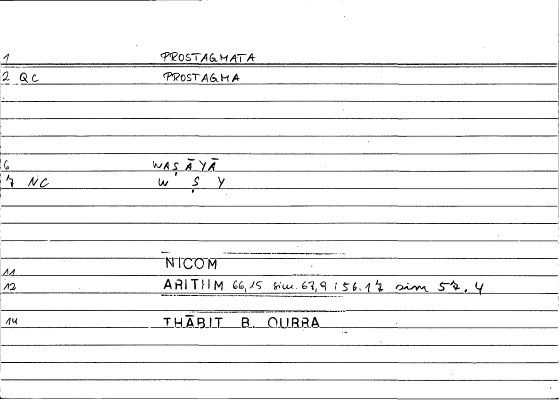 1 PROSTAGMATA
2 QC PROSTAGMA
6 WAṢĀYĀ
7 NC W Ṣ Y
11 NICOM
12 ARITHM 66,15 sim. 63,9; 56.17 sim 57.4
14 THĀBIT B. QURRA